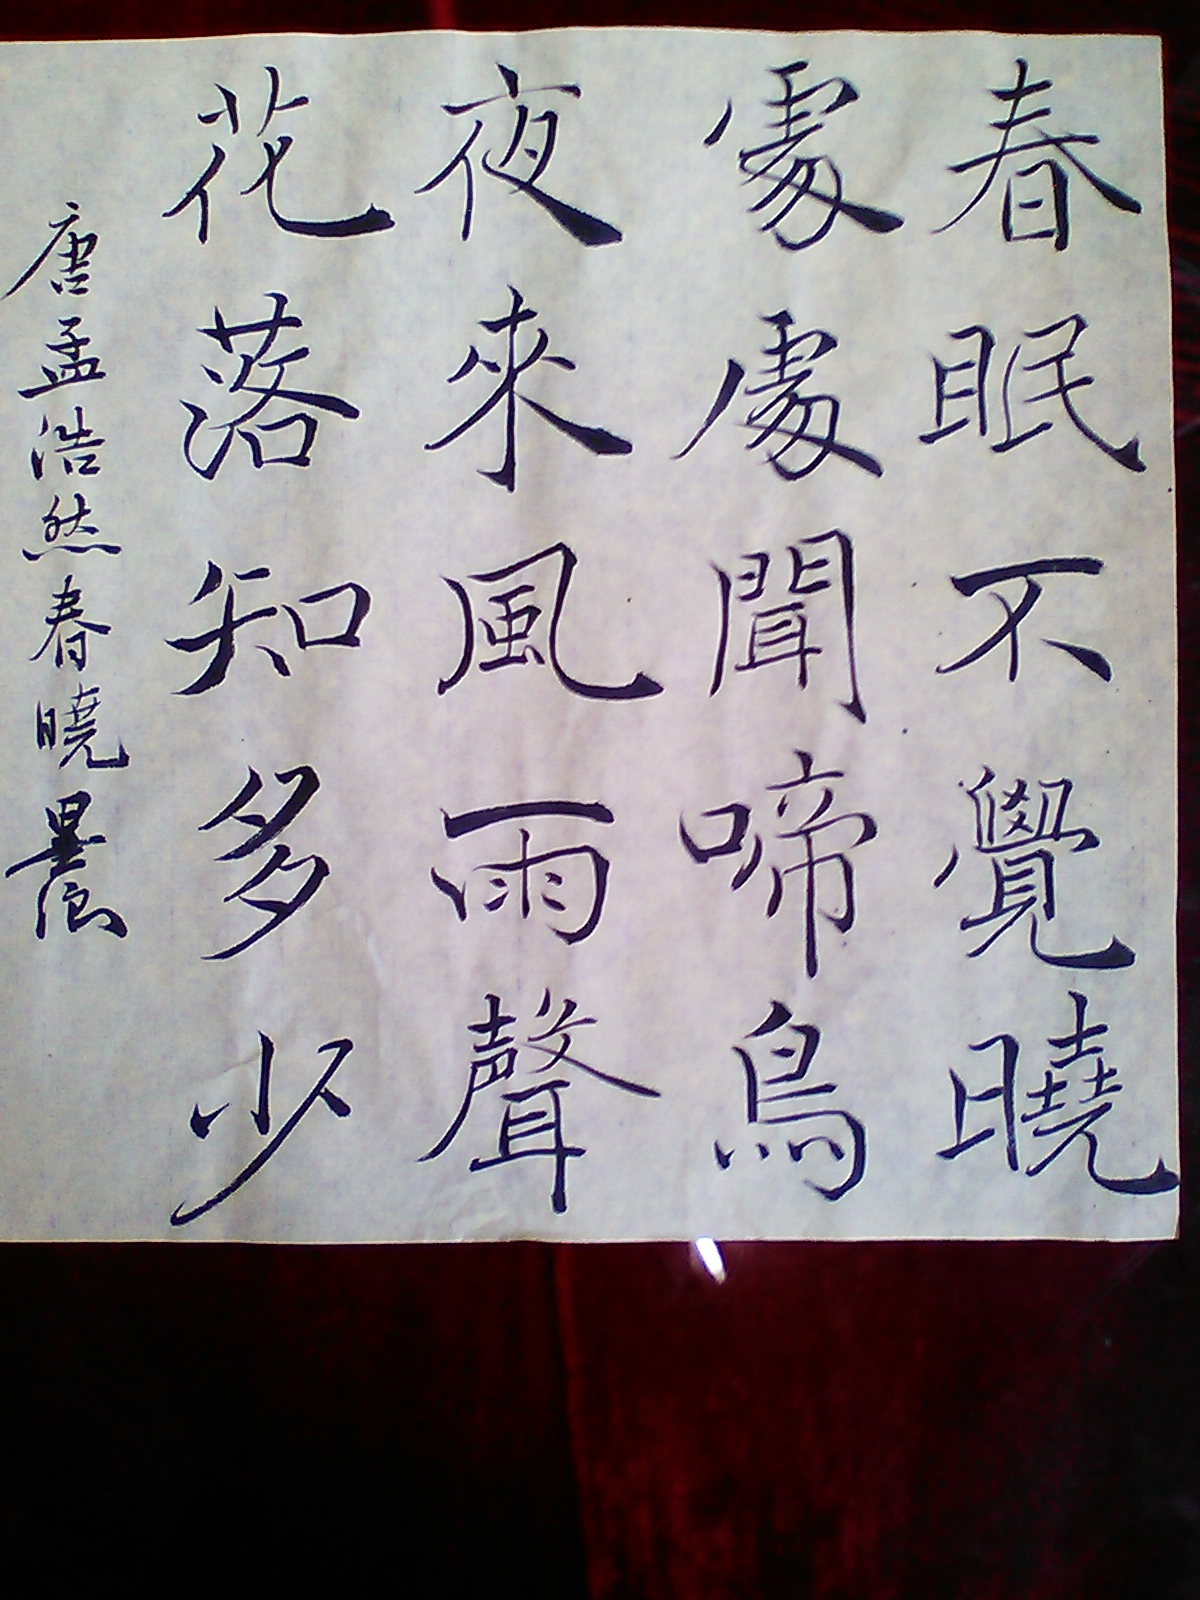 春眠不覺曉
處處聞啼鳥
夜來風雨聲
花落知多少
唐孟浩然春曉